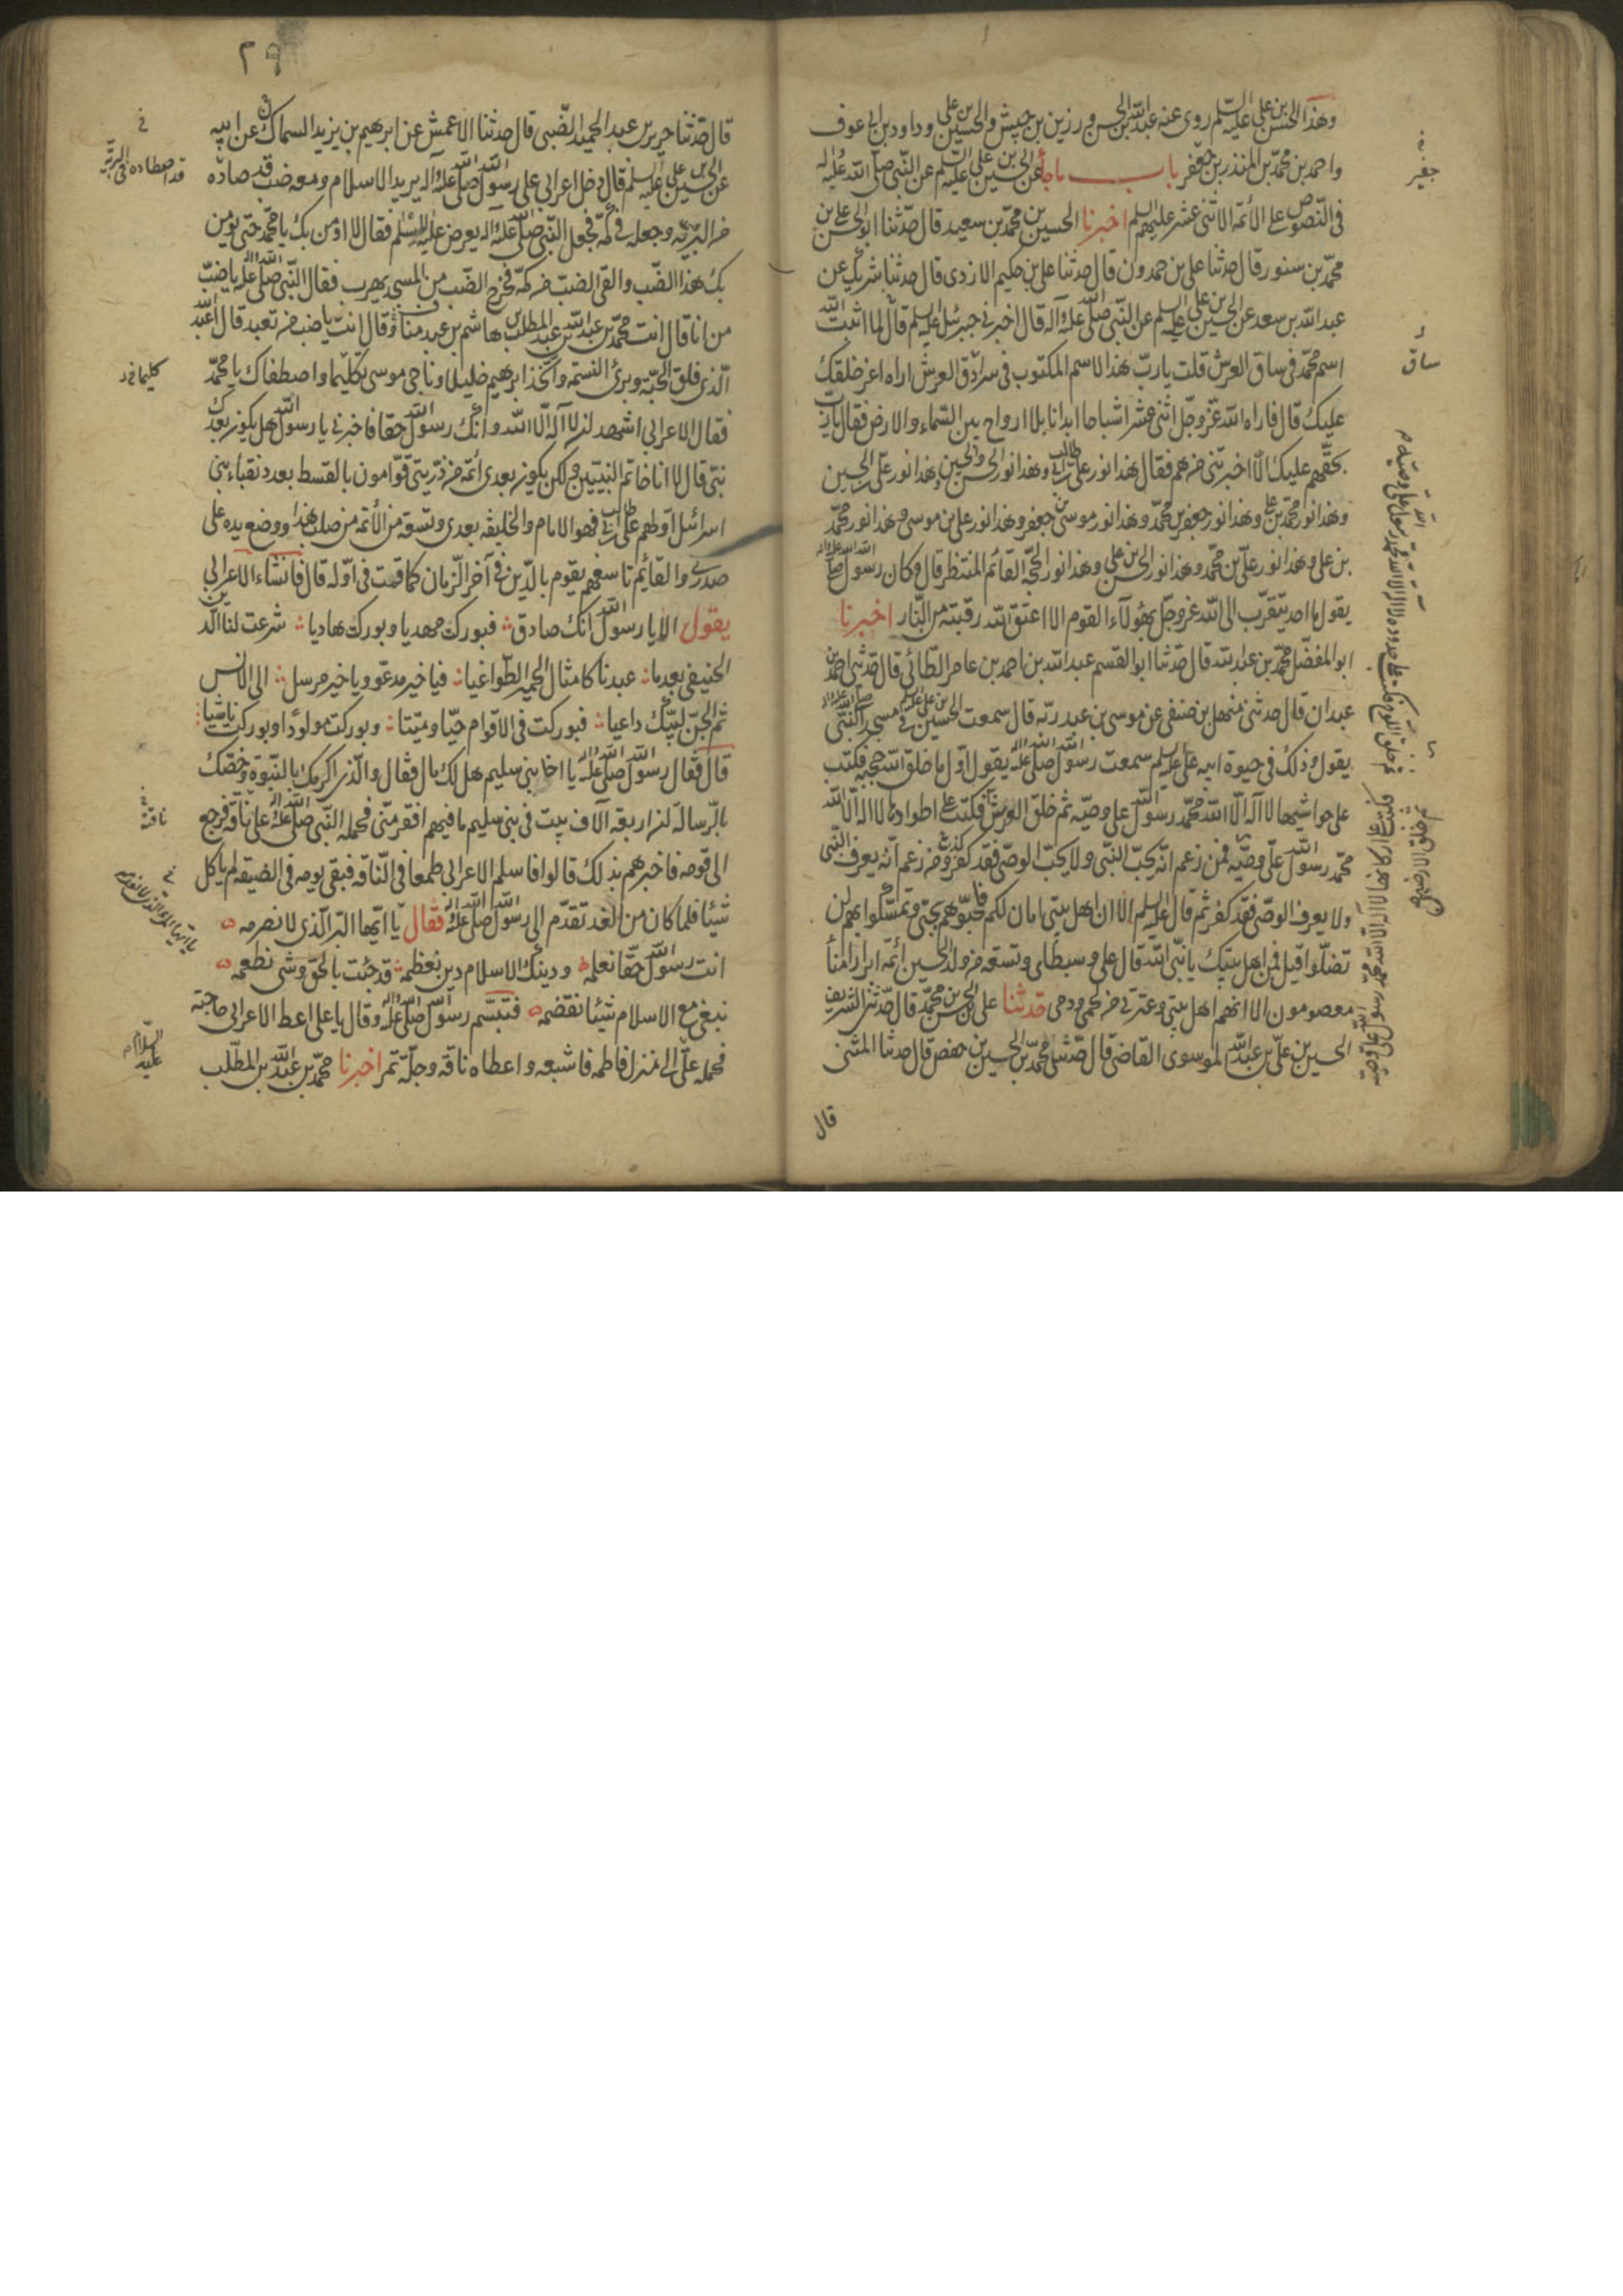 وهذا الحسن بن علي عليه السلم روى عنه عبد الله بن الحسن ورزين بن حبيش والحسين بن علي وداود بن ابي عوف
واحمد بن محمد بن المنذر بن جعفر باب ما جاء عن الحسين بن علي عليه السلم عن النبي صلى الله عليه واله
في النصوص على الأئمة الاثنى عشر عليهم السلم اخبرنا الحسين بن محمد بن سعيد قال حدثنا ابو الحسن علي بن
محمد بن سنور قال حدثنا علي بن حمدون قال حدثنا علي بن حكيم الازدى قال حدثنا شريك عن
عبد الله بن سعد عن الحسين بن علي عليه السلم عن النبي صلى الله عليه وآله قال اخبرني جبرئيل عليه السلم قال لما اثبت الله
اسم محمد في ساق العرش قلت يا رب هذا الاسم المكتوب في سرادق العرش اراه اعز خلقك
عليك قال فاراه الله عز وجل اثنى عشر اشباحا ابدانا بلا ارواح بين السماء والارض فقال يا رب
بحقهم عليك الا اخبرتني من هم فقال هذا نور علي بن ابي طالب وهذا نور الحسن والحسين وهذا نور علي بن الحسين
وهذا نور محمد بن علي وهذا نور جعفر بن محمد وهذا نور موسى بن جعفر وهذا نور علي بن موسى وهذا نور محمد
بن علي وهذا نور علي بن محمد وهذا نور الحسن بن علي وهذا نور الحجة القائم المنتظر قال وكان رسول الله صلى الله عليه واله
يقول ما احد يتقرب الى الله عز وجل بهؤلاء القوم الا اعتق الله رقبته من النار اخبرنا
ابو المفضل محمد بن عبد الله قال حدثنا ابو القسم عبد الله بن احمد بن عامر الطائي قال حدثني احمد بن
عبدان قال حدثني سهل بن صيفي عن موسى بن عبد ربه قال سمعت الحسين بن علي عليه السلم في مسجد النبي صلى الله عليه واله
يقول وذلك في حيوة ابيه علي عليه السلم سمعت رسول الله صلى الله عليه واله يقول اول ما خلق الله حجبه فكتب
على حواشيها لا اله الا الله محمد رسول الله علي وصيه ثم خلق العرش فكتب على اطواده لا اله الا الله
محمد رسول الله علي وصيه فمن زعم انه يحب النبي ولا يحب الوصي فقد كفر ومن زعم انه يعرف النبي
ولا يعرف الوصي فقد كفر ثم قال عليه السلم الا ان اهل بيتي امان لكم فاحبوهم بحبي وتمسكوا بهم لن
تضلوا قيل فمن اهل بيتك يا نبي الله قال علي وسبطاي وتسعة من ولد الحسين أئمة ابرار امناء
معصومون الا انهم اهل بيتي وعترتي من لحمي ودمي حدثنا علي بن الحسن بن محمد قال حدثني الشريف
الحسين بن علي بن عبد الله الموسوى القاضي قال حدثني محمد بن الحسين بن حفص قال حدثنا المثنى
قال
جفير
ساق
٢٩
قال حدثنا جرير بن عبد الحميد الضبي قال حدثنا الاعمش عن ابرهيم بن يزيد السماك عن ابيه
عن الحسين بن علي عليه السلم قال دخل اعرابي على رسول الله صلى الله عليه وآله يريد الاسلام ومعه ضب قد صاده
من البرية وجعله في كمه فجعل النبي صلى الله عليه واله يعرض عليه الاسلام فقال لا اؤمن بك يا محمد حتى يؤمن
بك هذا الضب والقى الضب من كمه فخرج الضب من المسجد يهرب فقال النبي صلى الله عليه واله يا ضب
من انا قال انت محمد بن عبد الله بن عبد المطلب بن هاشم بن عبد مناف وقال انت يا ضب من تعبد قال اعبد الله
الذي فلق الحبة وبرئ النسمة واتخذ ابرهيم خليلا وناجى موسى تكليما واصطفاك يا محمد
فقال الاعرابي اشهد ان لا اله الا الله وانك رسول الله حقا فاخبرني يا رسول الله هل يكون بعدك
نبي قال لا انا خاتم النبيين ولكن يكون بعدى ائمة من ذريتي قوامون بالقسط بعدد نقباء بني
اسرائيل اولهم علي بن ابي طالب فهو الامام والخليفة بعدى وتسعة من الأئمة من صلب هذا ووضع يده على
صدري والقائم تاسعهم يقوم بالدين في آخر الزمان كما قمت في اوله قال فانشاء الاعرابي
يقول الا يا رسول الله انك صادق فبوركت مهديا وبوركت هاديا شرعت لنا الدين
الحنيفي بعد ما عبدنا كامثال الحمير الطواغيا فيا خير مدعو ويا خير مرسل الى الانس
ثم الجن لبيك داعيا فبوركت في الاقوام حيا وميتا وبوركت مولودا وبوركت ناشيا
قال فقال رسول الله صلى الله عليه واله يا اخا بني سليم هل لك مال فقال والذي اكرمك بالنبوة وخصك
بالرسالة ان اربعة آلاف بيت في بني سليم ما فيهم افقر مني فحمله النبي صلى الله عليه واله على ناقة فرجع
الى قومه فاخبرهم بذلك قالوا فاسلم الاعرابي طمعا في الناقة فبقي يومه في الضيقة لم ياكل
شيئا فلما كان من الغد تقدم الى رسول الله صلى الله عليه واله فقال يا ايها البر الذي لا نصرمه
انت رسول الله حقا نعلمه ودينك الاسلام دين نعظمه قد جئت بالحق وشئ نطعمه
نبغي مع الاسلام شيئا نقضمه فتبسم رسول الله صلى الله عليه واله وقال يا علي اعط الاعرابي حاجته
فحمله علي الى منزل فاطمة فاشبعه واعطاه ناقة وجلة تمر اخبرنا محمد بن عبد الله بن المطلب
قد اصطاده في البرية
كليما
ناقته
عليه السلام